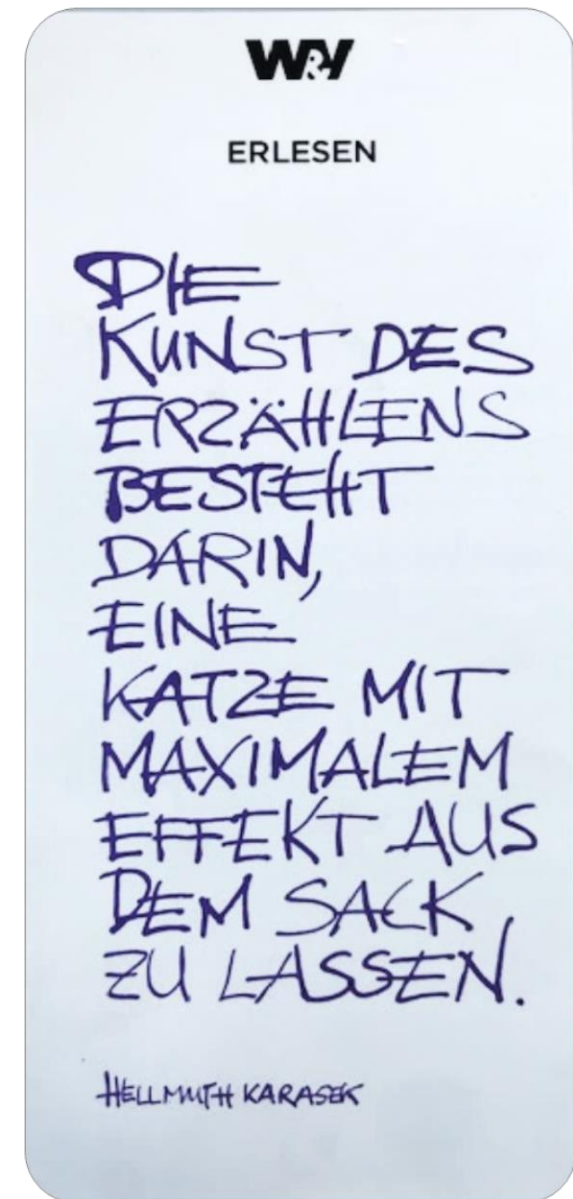 W&V
ERLESEN
DIE
KUNST DES
ERZÄHLENS
BESTEHT
DARIN,
EINE
KATZE MIT
MAXIMALEM
EFFEKT AUS
DEM SACK
ZU LASSEN.
HELLMUTH KARASEK